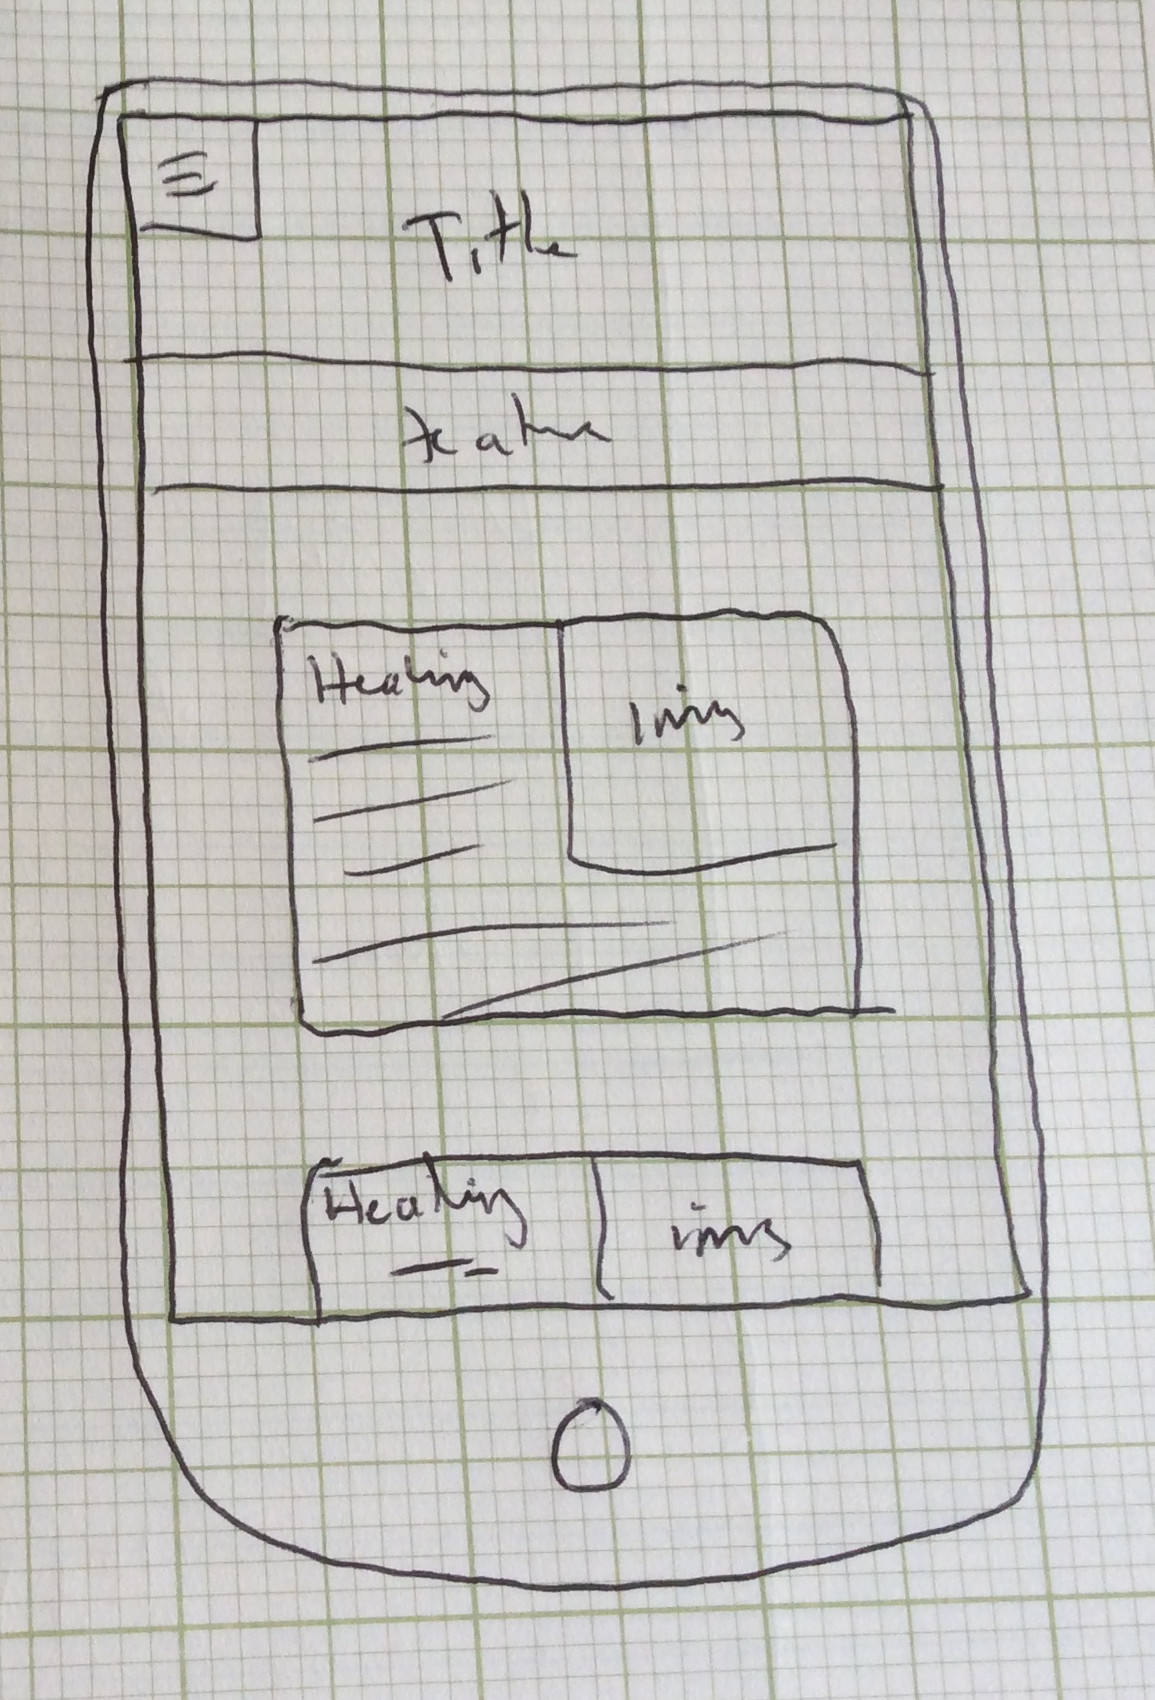 Title
feature
Heading
img
Heading
img